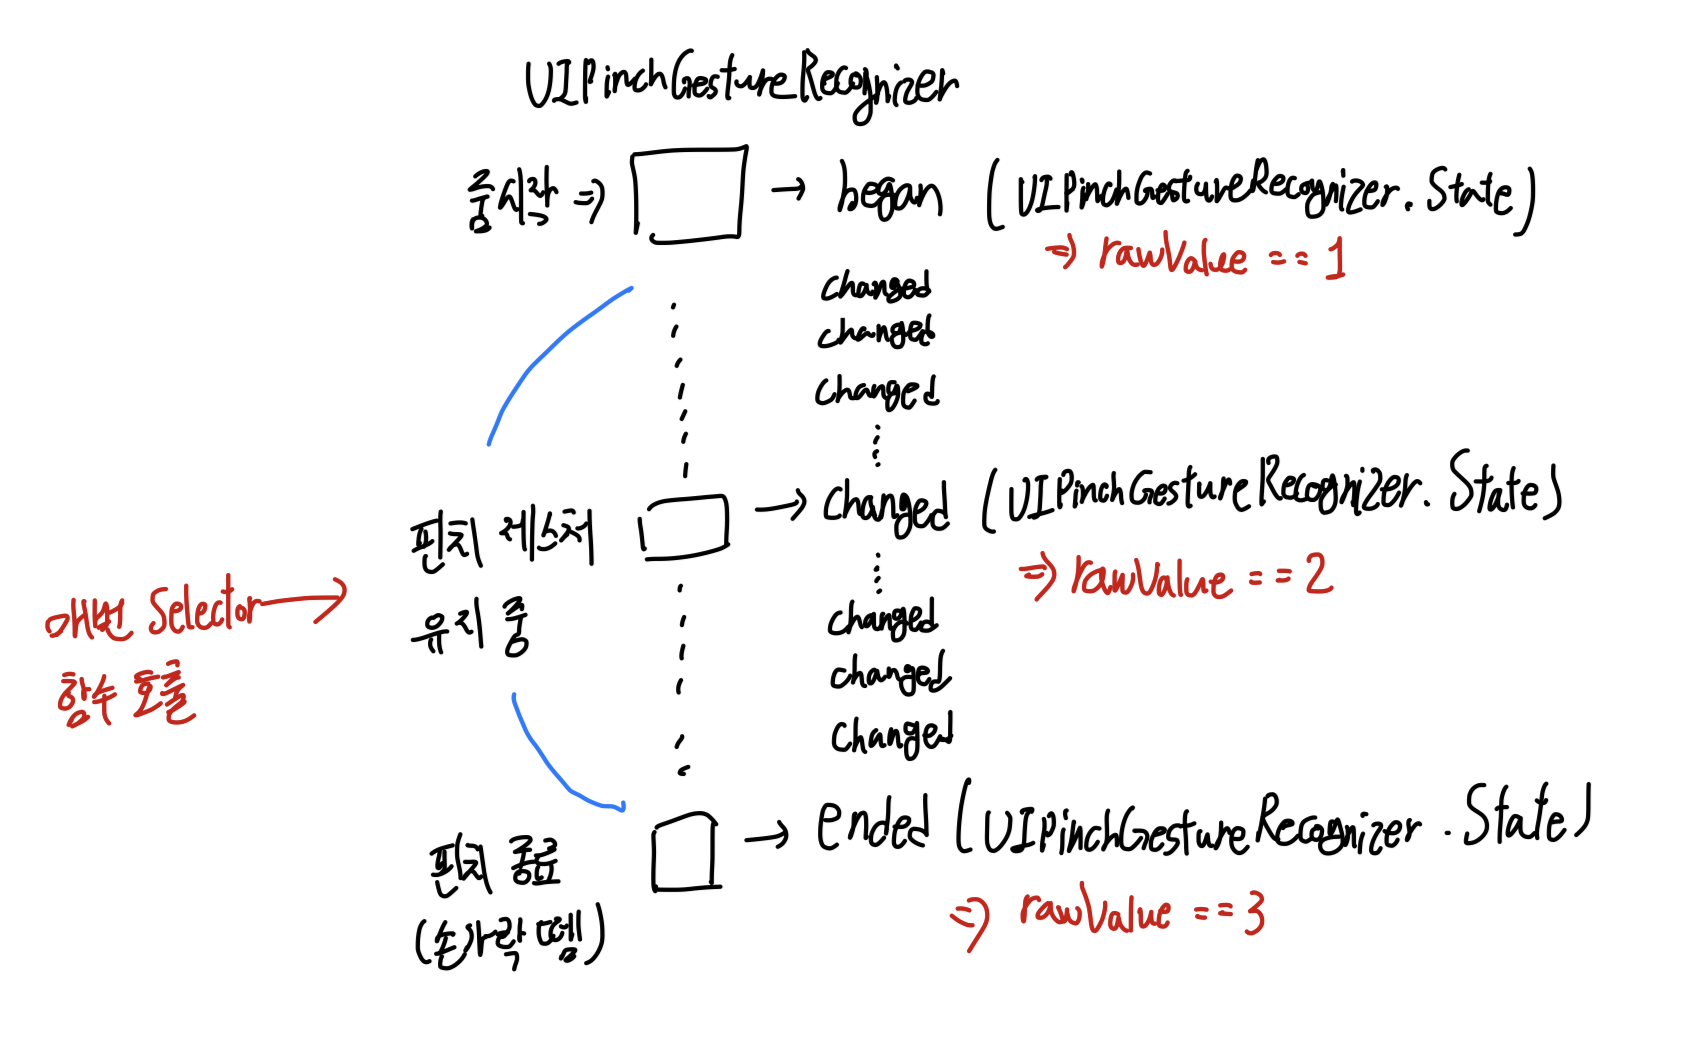 UIPinchGestureRecognizer
줌시작 ⇒ → began (UIPinchGestureRecognizer.State)
⇒ rawValue == 1
changed
changed
changed
핀치 제스처 → changed (UIPinchGestureRecognizer.State)
⇒ rawValue == 2
매번 Selector → 유지 중
함수 호출
changed
changed
changed
핀치 종료 → ended (UIPinchGestureRecognizer.State)
(손가락 뗌)
⇒ rawValue == 3